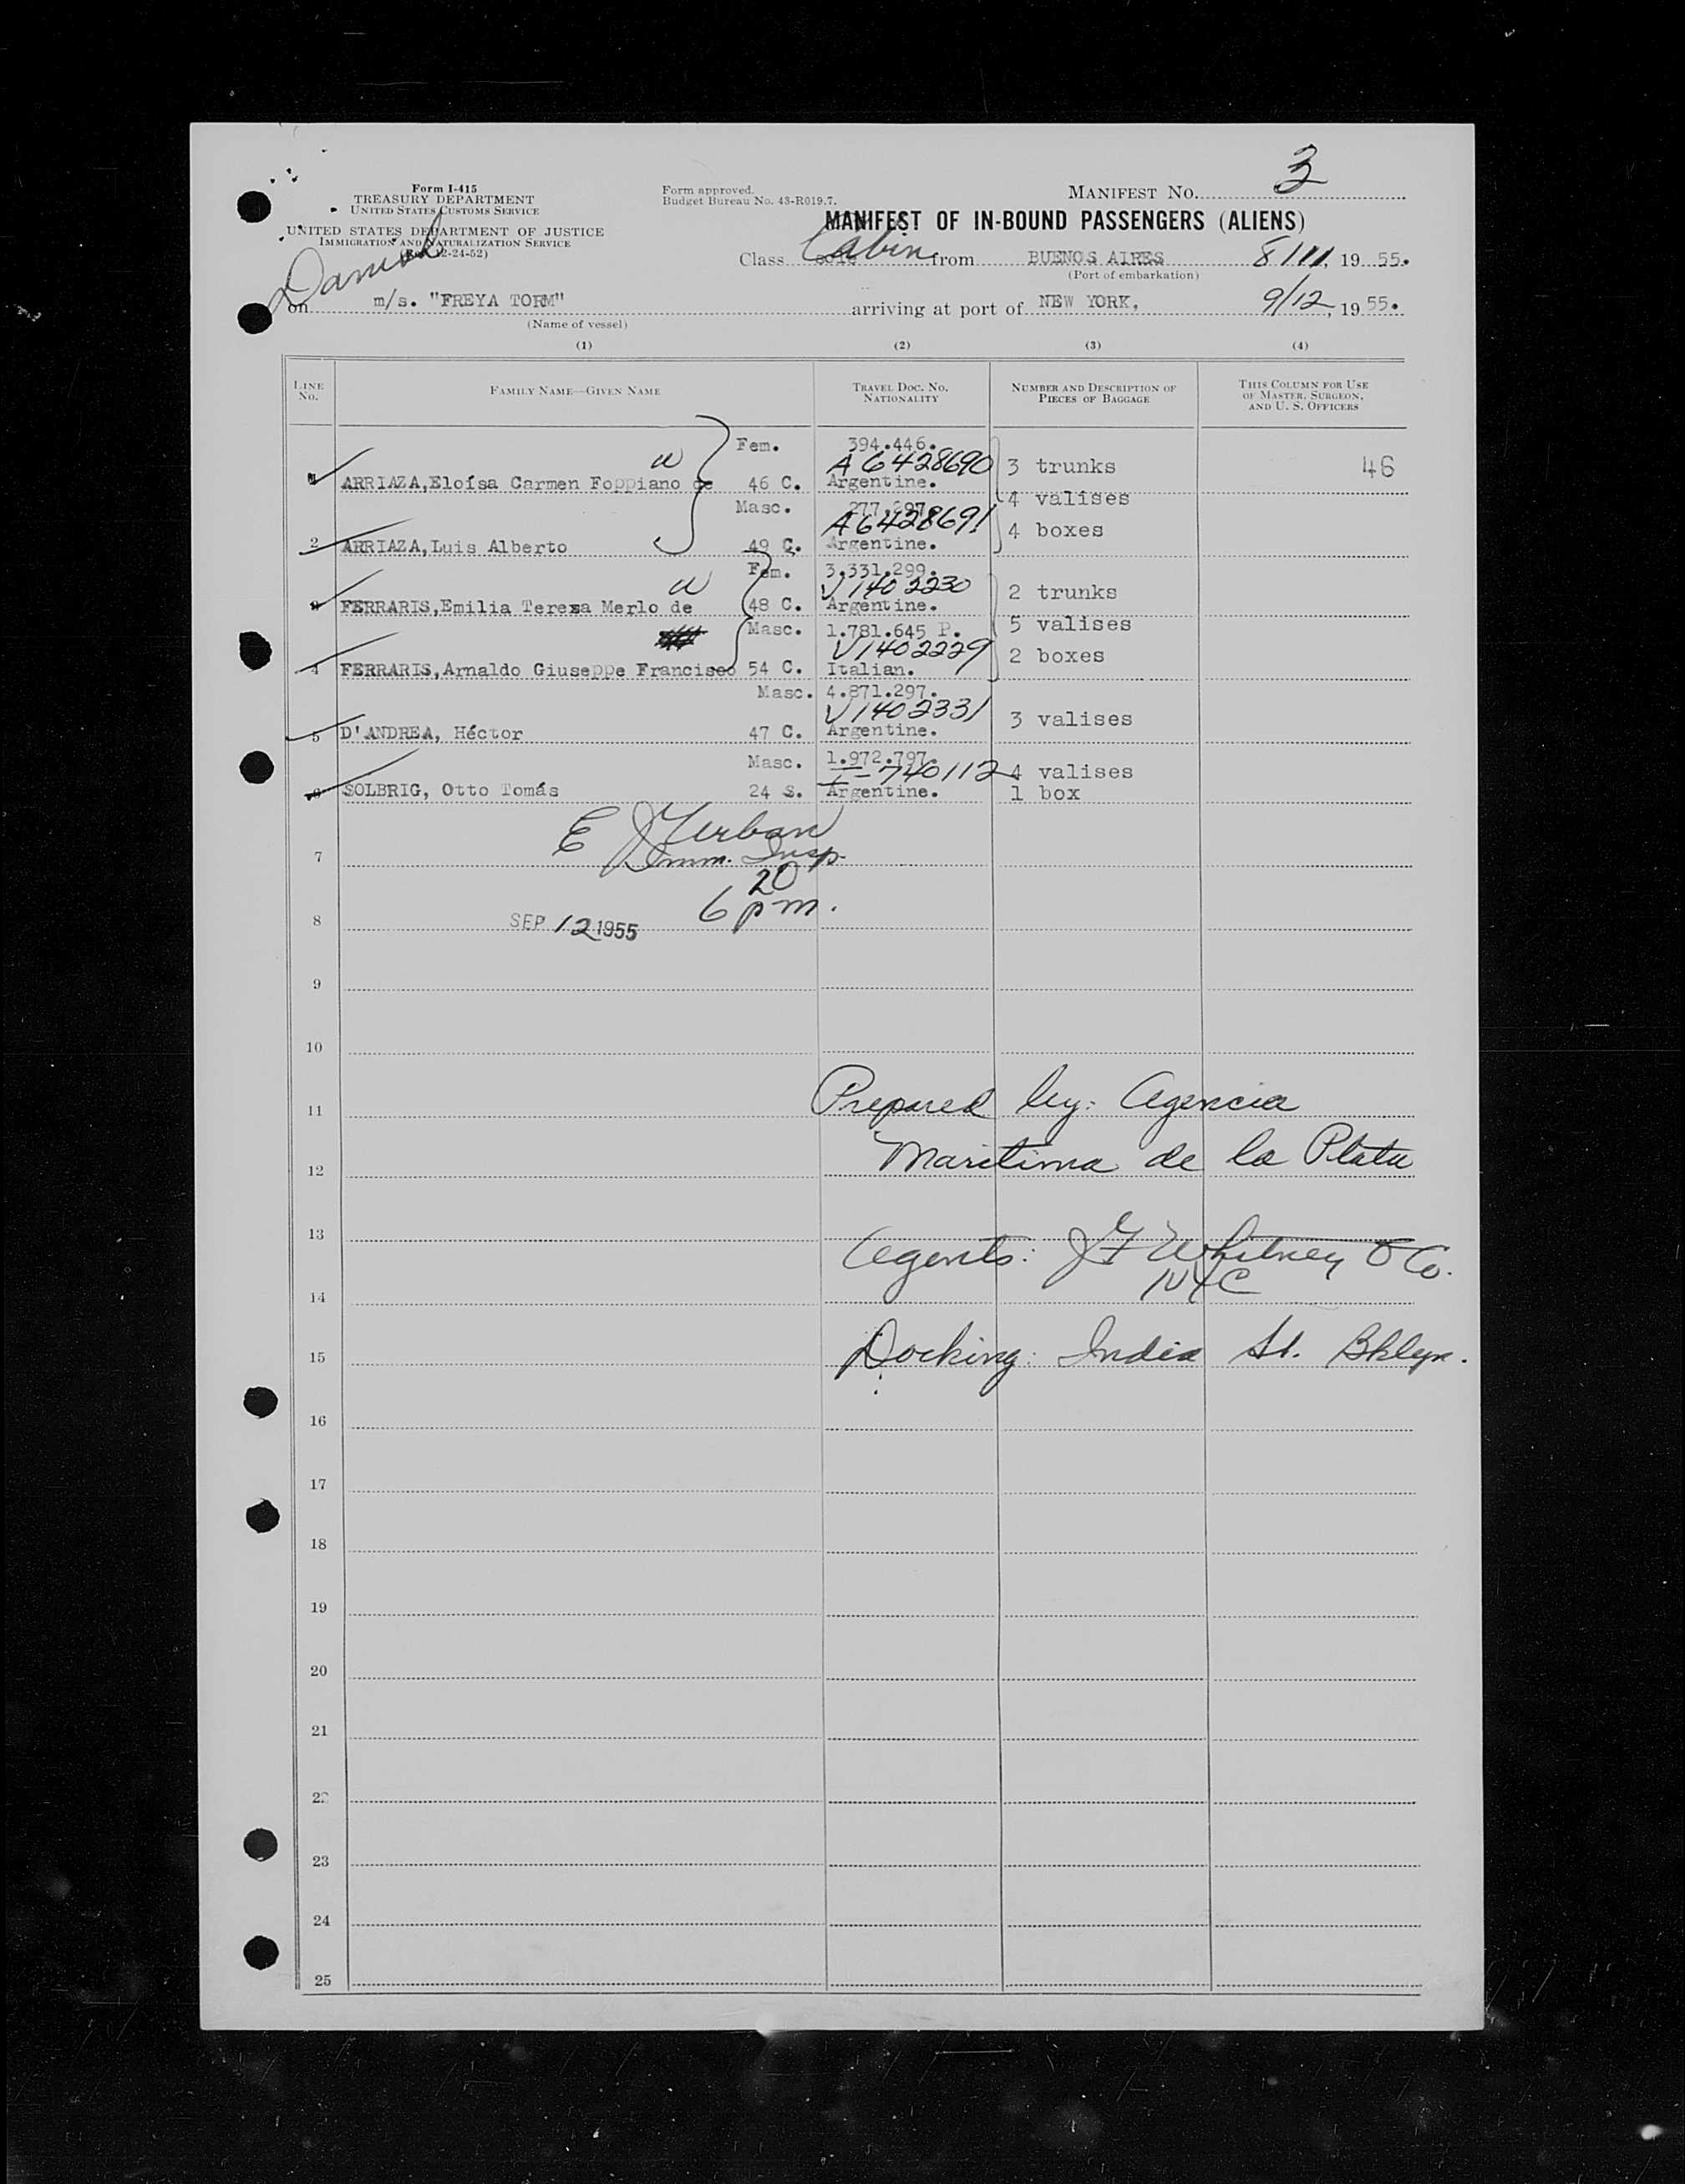 Form I-415
TREASURY DEPARTMENT
UNITED STATES CUSTOMS SERVICE
UNITED STATES DEPARTMENT OF JUSTICE
IMMIGRATION AND NATURALIZATION SERVICE
2-24-52)
Form approved.
Budget Bureau No. 43-R019.7.
MANIFEST No. 3
MANIFEST OF IN-BOUND PASSENGERS (ALIENS)
Class Cabin from BUENOS AIRES 8/11, 1955.
(Port of embarkation)
Danish
on m/s. "FREYA TORM" arriving at port of NEW YORK, 9/12, 1955.
(Name of vessel)
(1) (2) (3) (4)
LINE No. FAMILY NAME—GIVEN NAME TRAVEL DOC. No. NATIONALITY NUMBER AND DESCRIPTION OF PIECES OF BAGGAGE THIS COLUMN FOR USE OF MASTER, SURGEON, AND U. S. OFFICERS
Fem. 394.446.
W A6428690 3 trunks 46
1 ARRIAZA,Eloísa Carmen Foppiano de 46 C. Argentine.
Masc. 4 valises
A6428691 4 boxes
2 ARRIAZA,Luis Alberto 49 C. Argentine.
Fem. 3.331.299.
W V1402230 2 trunks
3 FERRARIS,Emilia Teresa Merlo de 48 C. Argentine.
Masc. 1.781.645 P. 5 valises
V1402229 2 boxes
4 FERRARIS,Arnaldo Giuseppe Francisco 54 C. Italian.
Masc. 4.871.297.
V1402331 3 valises
5 D'ANDREA, Héctor 47 C. Argentine.
Masc. 1.972.797.
I-740112 4 valises
6 SOLBRIG, Otto Tomás 24 S. Argentine. 1 box
E J Urban
7 Imm. Insp.
20
6 pm.
8 SEP 12 1955
9
10
11 Prepared by: Agencia
12 Maritima de la Plata
13
Agents: JF Whitney & Co.
NYC
14
15 Docking: India St. Bklyn.
16
17
18
19
20
21
22
23
24
25